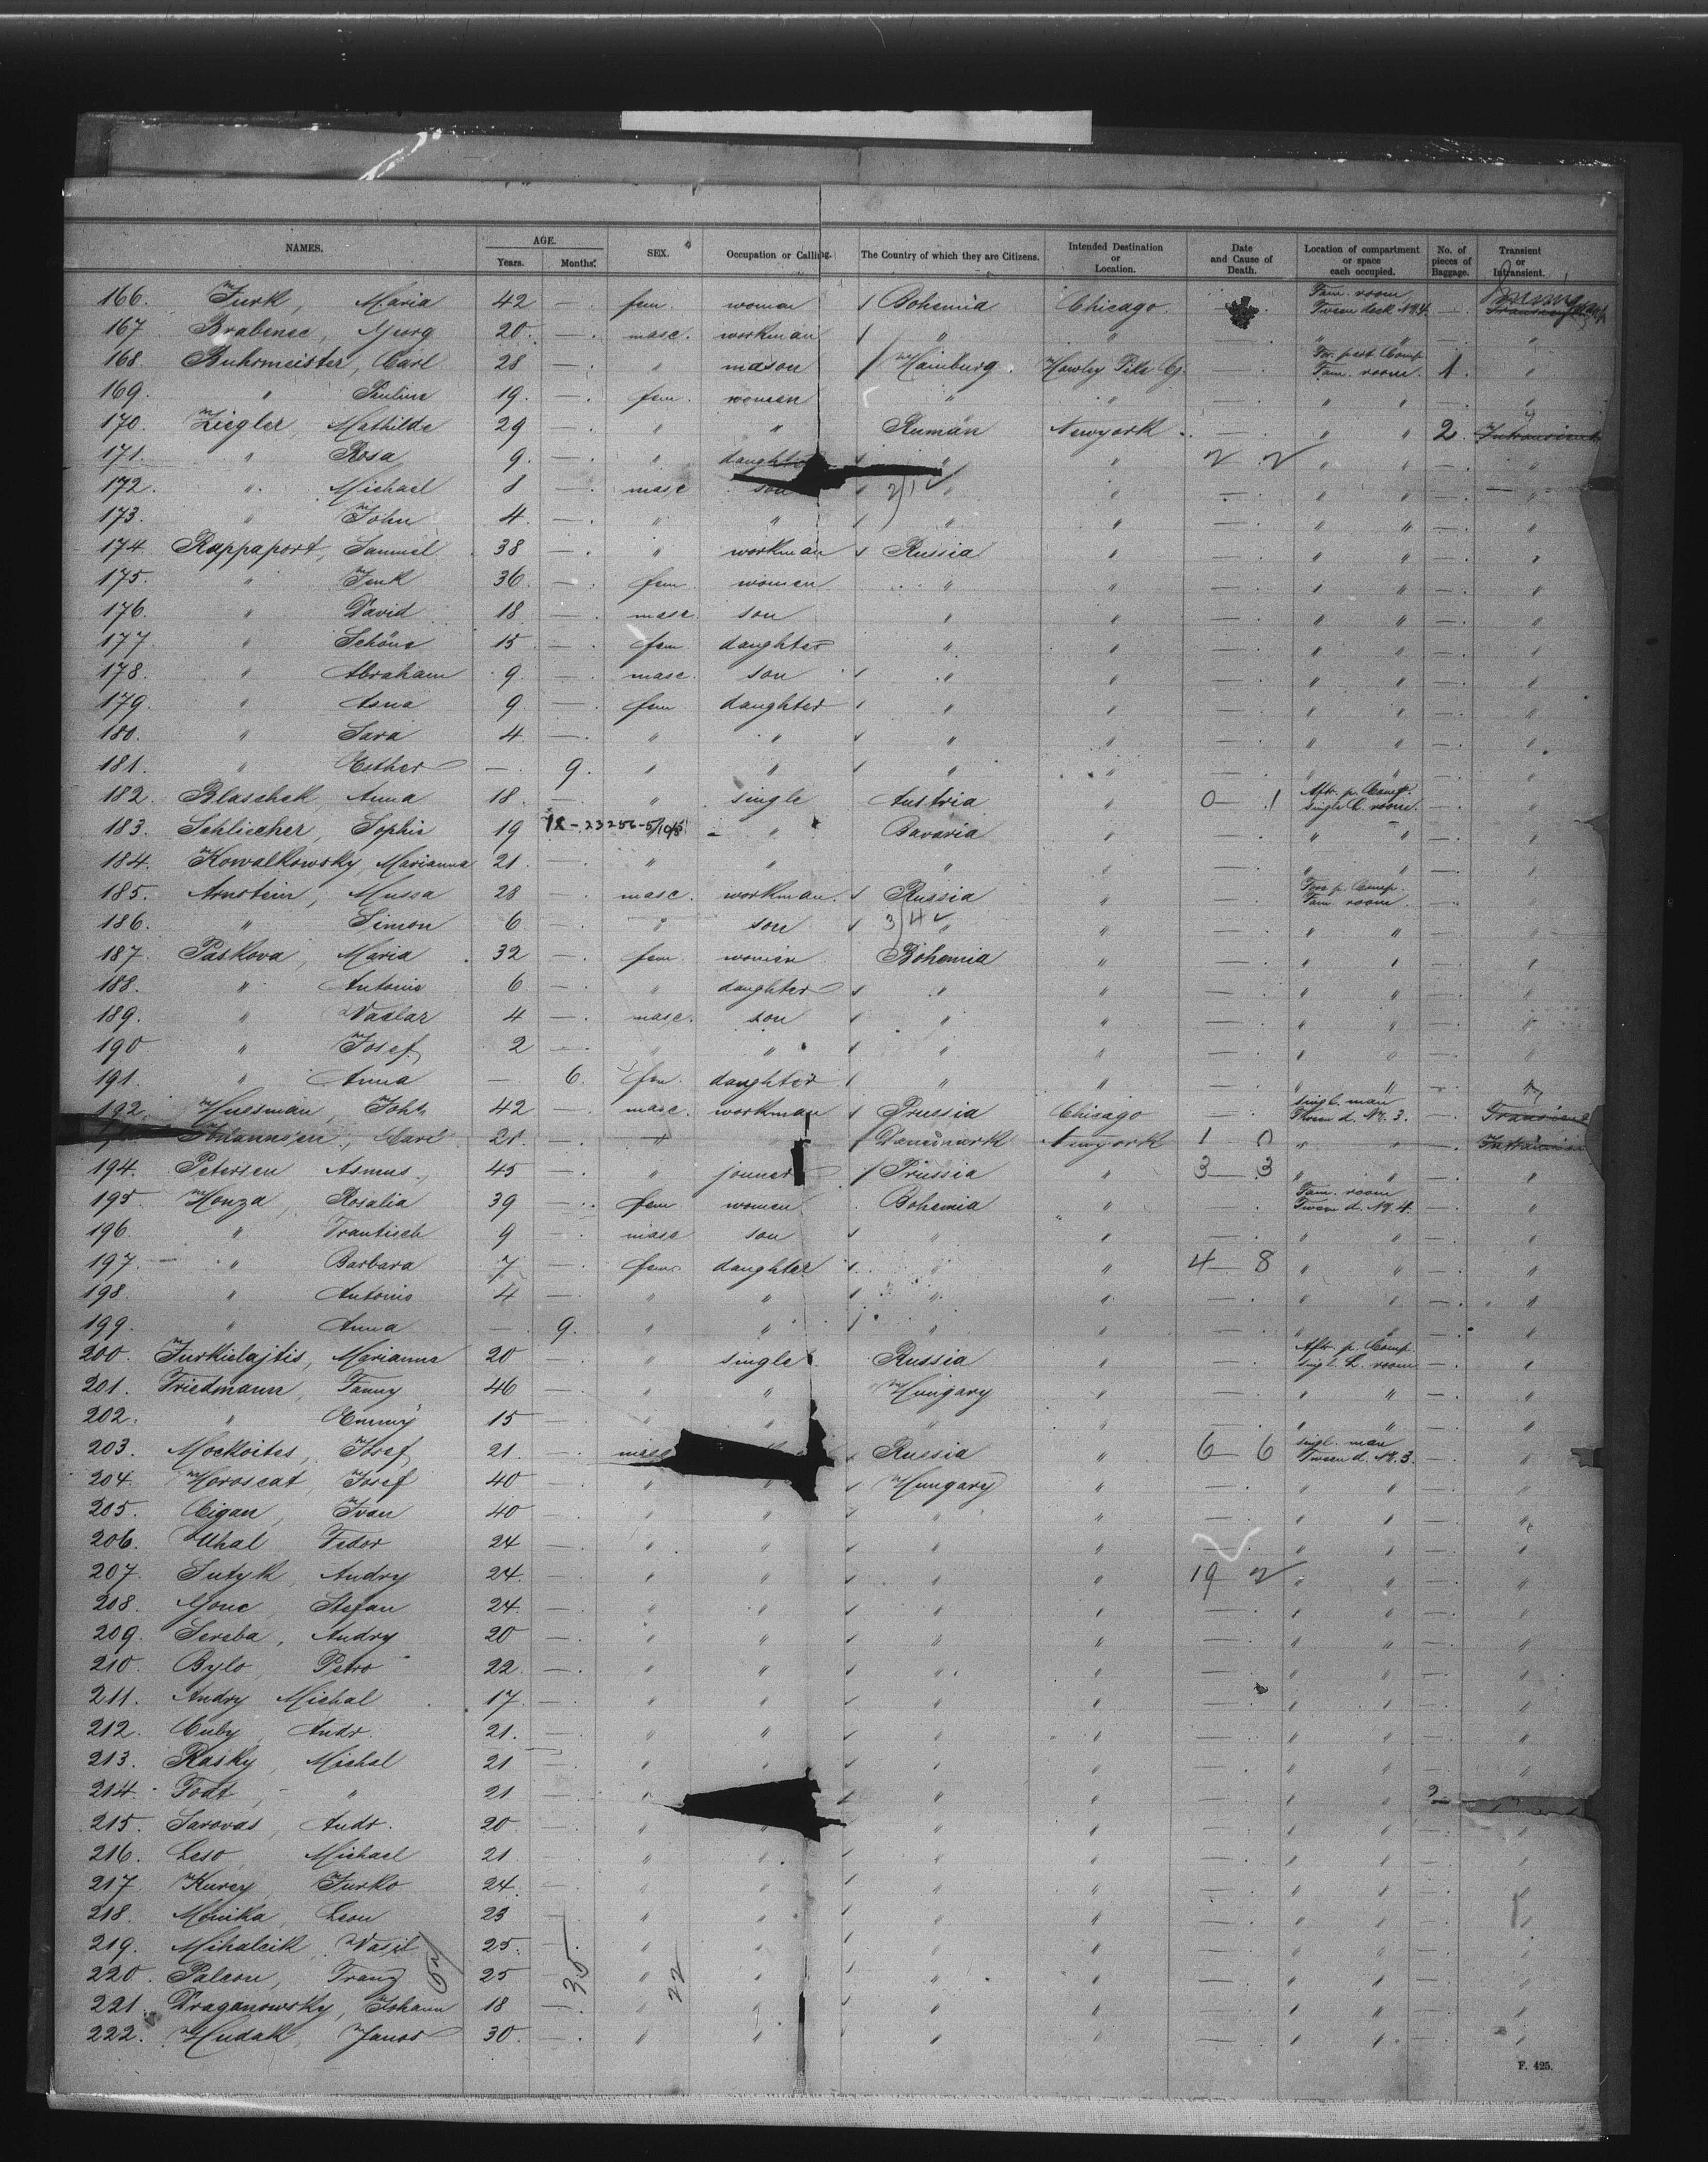 NAMES. AGE. Years. Months. SEX. Occupation or Calling. The Country of which they are Citizens. Intended Destination or Location. Date and Cause of Death. Location of compartment or space each occupied. No. of pieces of Baggage. Transient or Intransient.
166. Turk, Maria 42 — fem. woman Bohemia Chicago. — Fam. room Tween deck No 4 —
167. Brabenec, Georg 20. — masc. workman " " — " " — "
168. Buhrmeister, Carl 28 — " mason Hamburg. Hawley Pike Cy. — For. part Comp. Fam. room. 1. "
169. " Pauline 19. — fem. women " " — " " — "
170. Ziegler, Mathilde 29 — " " Rumän Newyork — " " 2. Intransient
171. " Rosa 9. — " daughter " " 2 2 " " — "
172. " Michael 8 — masc son 2/1 " " — " " — "
173. " John 4. — " " " " — " " — "
174. Rappaport, Samuel 38 — " workman Russia " — " " — "
175. " Jenk 36. — fem woman " " — " " — "
176. " David 18. — masc. son " " — " " — "
177. " Schöne 15 — fem daughter " " — " " — "
178. " Abraham 9. — masc. son " " — " " — "
179. " Anna 9 — fem daughter " " — " " — "
180. " Sara 4. — " " " " — " " — "
181. " Esther — 9. " " " " — " " — "
182. Blaschek Anna 18. — " single Austria " 0 — 1 Aft. p. Comp. single L. room. — "
183. Schlicher, Sophie 19 " Bavaria " — " " — "
184. Kowalkowsky, Marianna 21. — " " " " — " " — "
185. Arnstein, Mussa 28 masc. workman. Russia " — Fore p. Comp. Fam. room. — "
186. " Simon 6 — " son 3/4 " " — " " — "
187. Paskova, Maria 32 — fem woman Bohemia " — " " — "
188. " Antonie 6 — " daughter " " — " " — "
189. " Vaclav 4 — masc. son " " — " " — "
190 " Josef 2 — " " " " — " " — "
191. " Anna — 6. fem. daughter " " — " " — "
192. Huesman, John 42 — masc. workman Prussia Chicago — singl. man Tween d. No. 3. — Transient
Carl 21. — " Danemark Newyork 1 0 " " — Intransient
194. Petersen Asmus. 45 — " joiner Prussia " 3 — 3 " " — "
195. Honza, Rosalia 39 — fem woman Bohemia " — Fam. room Tween d. No. 4. — "
196. " Frantisek 9 — masc son " " — " " — "
197. " Barbara 7 — fem. daughter " " 4 — 8 " " — "
198. " Antonie 4 — " " " " — " " — "
199. " Anna — 9. " " " " — " " — "
200. Jurkielajtis, Marianna 20 — " single Russia " — Aft. p. Comp. singl. L. room — "
201. Friedmann, Fanny 46 — " " Hungary " — " " — "
202. " Emmy 15 — " " " " — " " — "
203. Mockoites, Josef 21. — masc Russia " 6 — 6 singl. man Tween d. No. 3. — "
204. Horoscat Josef 40 — " " Hungary " — " " — "
205. Cigan, Ivan 40 — " " " " — " " — "
206. Uhal Fedor 24 — " " " " — " " — "
207. Sutyk, Andry 24. — " " " " 19 2 " " — "
208. Gonc Stefan 24. — " " " " — " " — "
209. Sereba, Andry 20 — " " " " — " " — "
210. Bylo, Petro 22. — " " " " — " " — "
211. Andry Michal 17. — " " " " — " " — "
212. Cuby, Andr. 21. — " " " " — " " — "
213. Rasky, Michal 21 — " " " " — " " — "
214. Fodt, " 21 — " " " — " " 2 "
215. Sarovas, Andr. 20 — " " " " — " " — "
216. Leso, Michael 21 — " " " " — " " — "
217 Kurey, Jurko 24. — " " " " — " " — "
218. Monika, Leon 23 — " " " " — " " — "
219. Mihalcik, Wasil 25. — " " " " — " " — "
220. Palcon, Franz 25 35 " 22 " " " — " " — "
221. Draganowsky, Johann 18 — " " " " — " " — "
222. Hudak, Janos 30. — " " " " — " " — "
F. 425.